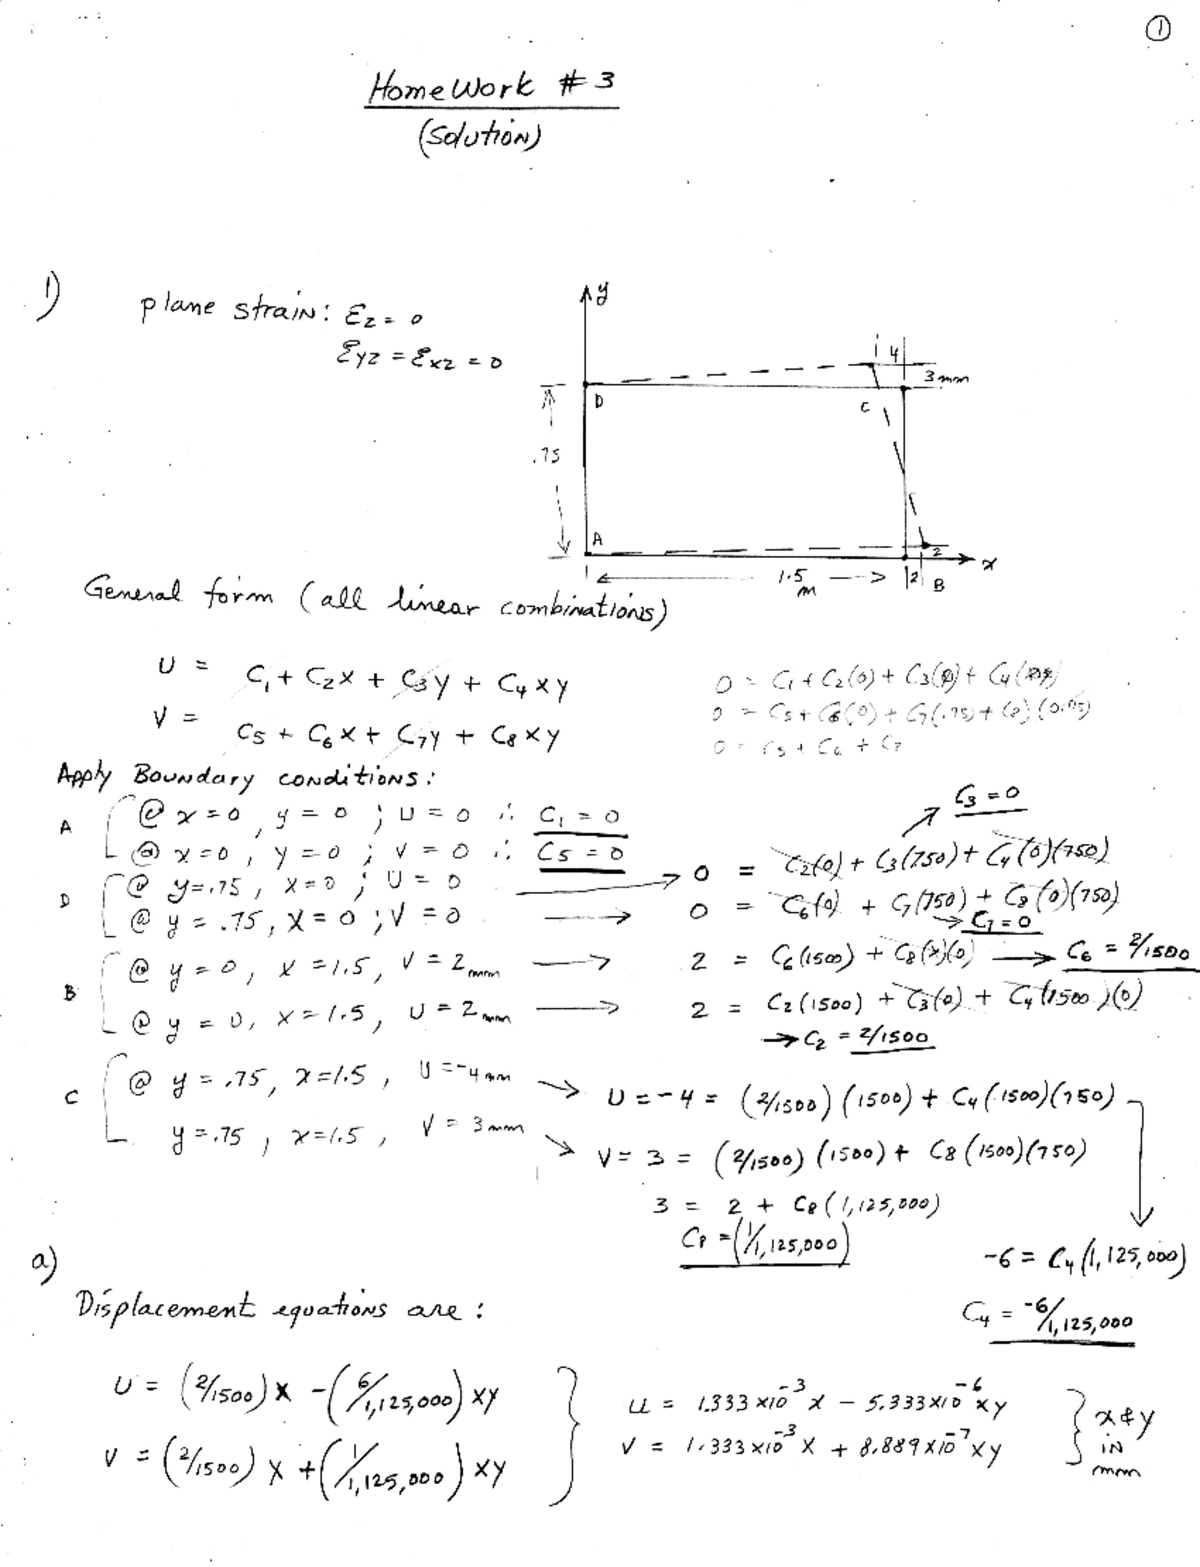 ①
HomeWork # 3
(Solution)
1)
plane strain: εz = 0
εyz = εxz = 0
y
4
3 mm
D
C
.75
A
2
x
1.5 m
2
B
General form (all linear combinations)
U = C1 + C2x + C3y + C4xy
V = C5 + C6x + C7y + C8xy
0 = C1 + C2(0) + C3(0) + C4
0 = C5 + C6(0) + C7(.75) + C8
0 = C5 + C6 + C7
Apply Boundary conditions:
A
@ x=0, y=0; U=0 ∴ C1 = 0
@ x=0, y=0; V=0 ∴ C5 = 0
C3 = 0
D
@ y=.75, x=0; U=0 → 0 = C2(0) + C3(750) + C4(0)(750)
@ y=.75, x=0; V=0 → 0 = C6(0) + C7(750) + C8(0)(750)
→ C7 = 0
B
@ y=0, x=1.5, V=2mm → 2 = C6(1500) + C8(x)(0) → C6 = 2/1500
@ y=0, x=1.5, U=2mm → 2 = C2(1500) + C3(0) + C4(1500)(0)
→ C2 = 2/1500
C
@ y=.75, x=1.5, U=-4mm → U = -4 = (2/1500)(1500) + C4(1500)(750)
y=.75, x=1.5, V=3mm → V = 3 = (2/1500)(1500) + C8(1500)(750)
3 = 2 + C8(1,125,000)
C8 = (1/1,125,000)
-6 = C4(1,125,000)
C4 = -6/1,125,000
a)
Displacement equations are:
U = (2/1500)x - (6/1,125,000)xy
V = (2/1500)x + (1/1,125,000)xy
u = 1.333x10⁻³x - 5.333x10⁻⁶xy
v = 1.333x10⁻³x + 8.889x10⁻⁷xy
x & y
in
mm